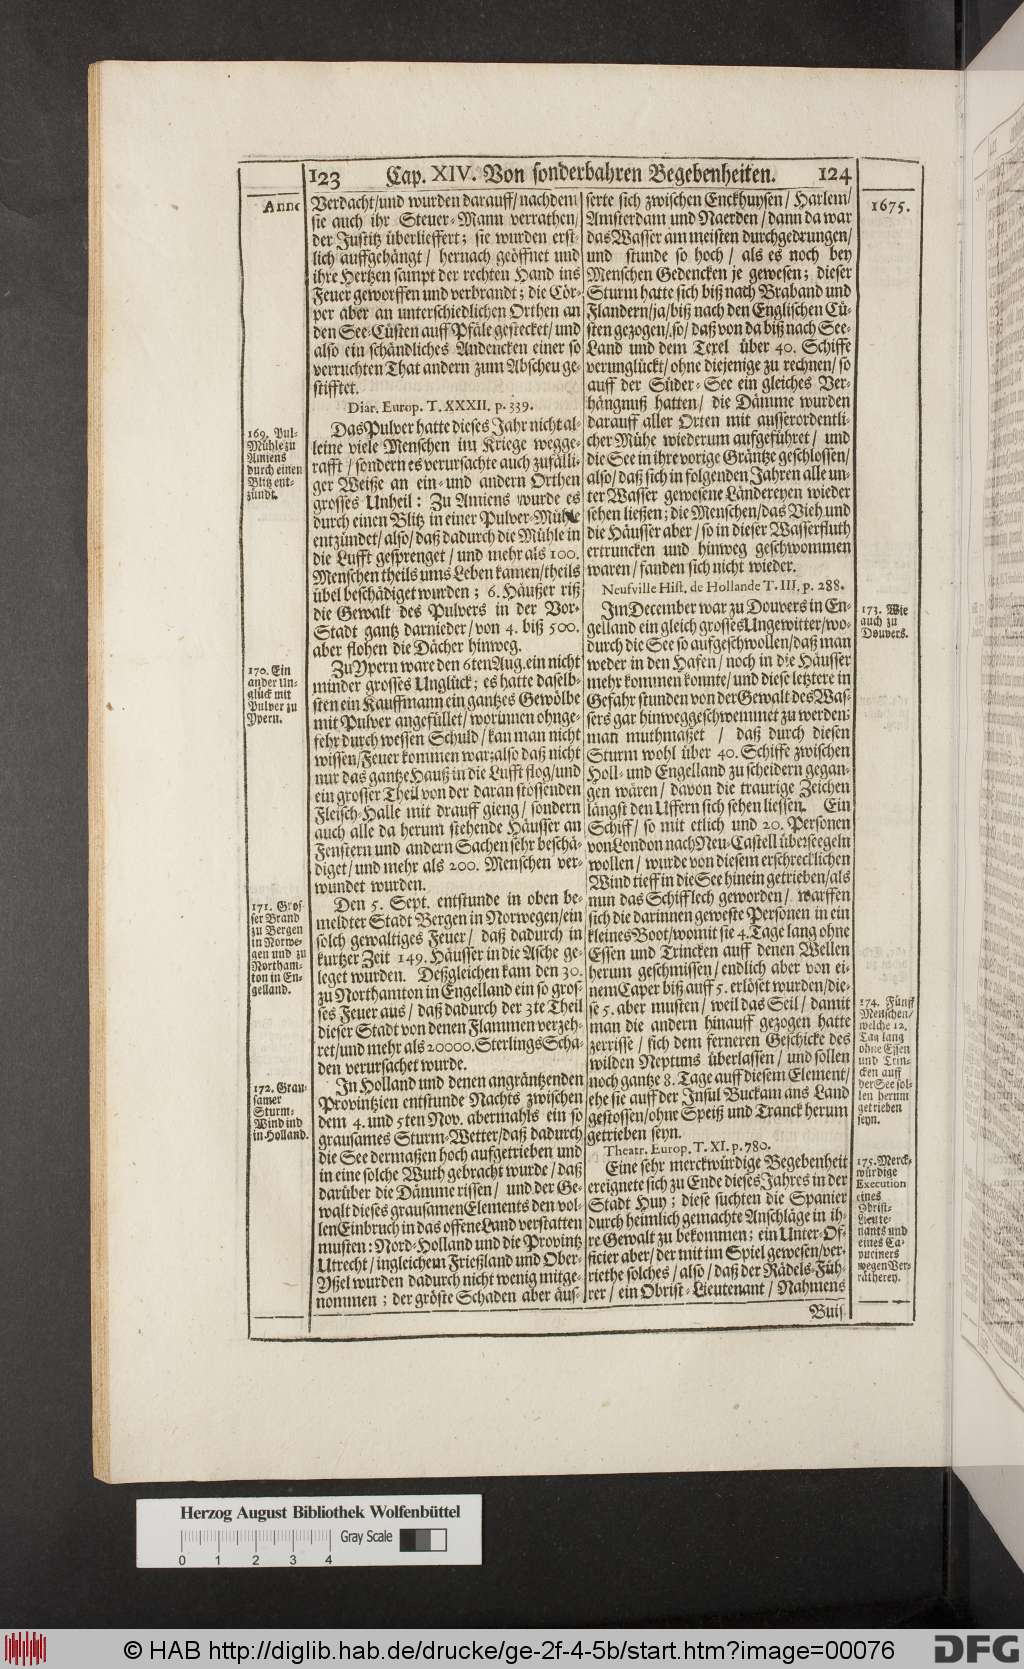 123 Cap. XIV. Von sonderbahren Begebenheiten. 124
Anno
Verdacht/und wurden darauff/nachdem
sie auch ihr Steuer-Mann verrathen/
der Justitz überlieffert; sie wurden erst-
lich auffgehängt / hernach geöffnet und
ihre Hertzen sampt der rechten Hand ins
Feuer geworffen und verbrandt; die Cör-
per aber an unterschiedlichen Orthen an
den See-Cüsten auff Pfäle gestecket/und
also ein schändliches Andencken einer so
verruchten That andern zum Abscheu ge-
stifftet.
Diar. Europ. T. XXXII. p. 339.
169. Pul-
Mühle zu
Amiens
durch einen
Blitz ent-
zündt.
Das Pulver hatte dieses Jahr nicht al-
leine viele Menschen im Kriege wegge-
rafft / sondern es verursachte auch zufälli-
ger Weiße an ein- und andern Orthen
grosses Unheil: Zu Amiens wurde es
durch einen Blitz in einer Pulver-Mühle
entzündet/also/daß dadurch die Mühle in
die Lufft gesprenget / und mehr als 100.
Menschen theils ums Leben kamen/theils
übel beschädiget wurden; 6. Häußer riß
die Gewalt des Pulvers in der Vor-
Stadt gantz darnieder/von 4. biß 500.
aber flohen die Dächer hinweg.
170. Ein
ander Un-
glück mit
Pulver zu
Ypern.
Zu Ypern ware den 6ten Aug. ein nicht
minder grosses Unglück; es hatte daselb-
sten ein Kauffmann ein gantzes Gewölbe
mit Pulver angefüllet/worinnen ohnge-
fehr durch wessen Schuld/kan man nicht
wissen/Feuer kommen war:also daß nicht
nur das gantze Hauß in die Lufft flog/und
ein grosser Theil von der daran stossenden
Fleisch-Halle mit drauff gieng / sondern
auch alle da herum stehende Häusser an
Fenstern und andern Sachen sehr beschä-
diget/und mehr als 200. Menschen ver-
wundet wurden.
171. Gros-
ser Brand
zu Bergen
in Norwe-
gen und zu
Northam-
ton in En-
gelland.
Den 5. Sept. entstunde in oben be-
meldter Stadt Bergen in Norwegen/ein
solch gewaltiges Feuer / daß dadurch in
kurtzer Zeit 149. Häusser in die Asche ge-
leget wurden. Deßgleichen kam den 30.
zu Northamton in Engelland ein so gros-
ses Feuer aus / daß dadurch der 3te Theil
dieser Stadt von denen Flammen verzeh-
ret/und mehr als 20000. Sterlings Scha-
den verursachet wurde.
172. Grau-
samer
Sturm-
Wind ind
in Holland.
In Holland und denen angräntzenden
Provintzien entstunde Nachts zwischen
dem 4. und 5ten Nov. abermahls ein so
grausames Sturm-Wetter/daß dadurch
die See dermaßen hoch aufgetrieben und
in eine solche Wuth gebracht wurde / daß
darüber die Dämme rissen / und der Ge-
walt dieses grausamen Elements den vol-
len Einbruch in das offene Land verstatten
musten: Nord-Holland und die Provintz
Utrecht / ingleichem Frießland und Ober-
Yßel wurden dadurch nicht wenig mitge-
nommen; der gröste Schaden aber äus-
1675.
serte sich zwischen Enckhuysen / Harlem/
Amsterdam und Naerden / dann da war
das Wasser am meisten durchgedrungen/
und stunde so hoch / als es noch bey
Menschen Gedencken je gewesen; dieser
Sturm hatte sich biß nach Braband und
Flandern/ja/biß nach den Englischen Cü-
sten gezogen/so/daß von da biß nach See-
Land und dem Texel über 40. Schiffe
verunglückt/ohne diejenige zu rechnen/so
auff der Süder-See ein gleiches Ver-
hängnuß hatten / die Dämme wurden
darauff aller Orten mit ausserordentli-
cher Mühe wiederum aufgeführet / und
die See in ihre vorige Gräntze geschlossen/
also/daß sich in folgenden Jahren alle un-
ter Wasser gewesene Ländereyen wieder
sehen ließen; die Menschen/das Vieh und
die Häusser aber / so in dieser Wasserfluth
ertruncken und hinweg geschwommen
waren / fanden sich nicht wieder.
Neufville Hist. de Hollande T. III. p. 288.
173. Wie
auch zu
Douvers.
Im December war zu Douvers in En-
gelland ein gleich grosses Ungewitter/wo-
durch die See so aufgeschwollen/daß man
weder in den Hafen / noch in die Häusser
mehr kommen konnte/und diese letztere in
Gefahr stunden von der Gewalt des Was-
sers gar hinweggeschwemmet zu werden;
man muthmaßet / daß durch diesen
Sturm wohl über 40. Schiffe zwischen
Holl- und Engelland zu scheidern gegan-
gen wären / davon die traurige Zeichen
längst den Uffern sich sehen liessen. Ein
Schiff / so mit etlich und 20. Personen
von London nach Neu-Castell überseegeln
wollen / wurde von diesem erschrecklichen
Wind tieff in die See hinein getrieben/als
nun das Schiff lech geworden / warffen
sich die darinnen geweste Personen in ein
kleines Boot/womit sie 4. Tage lang ohne
Essen und Trincken auff denen Wellen
herum geschmissen / endlich aber von ei-
nem Caper biß auff 5. erlöset wurden/die-
se 5. aber musten / weil das Seil / damit
man die andern hinauff gezogen hatte
zerrisse / sich dem ferneren Geschicke des
wilden Neptuns überlassen / und sollen
noch gantze 8. Tage auff diesem Element/
ehe sie auff der Insul Buckam ans Land
gestossen/ohne Speiß und Tranck herum
getrieben seyn.
Theatr. Europ. T. XI. p. 780.
174. Fünff
Menschen/
welche 12.
Tag lang
ohne Essen
und Trin-
cken auff
der See sol-
len herum
getrieben
seyn.
175. Merck-
würdige
Execution
eines
Obrist-
Lieute-
nants und
eines Ca-
puciners
wegen Ver-
rätherey.
Eine sehr merckwürdige Begebenheit
ereignete sich zu Ende dieses Jahres in der
Stadt Huy; diese suchten die Spanier
durch heimlich gemachte Anschläge in ih-
re Gewalt zu bekommen; ein Unter-Of-
ficier aber / der mit im Spiel gewesen/ver-
riethe solches / also / daß der Rädels-Füh-
rer / ein Obrist-Lieutenant / Nahmens
Buis
Herzog August Bibliothek Wolfenbüttel
Gray Scale
0 1 2 3 4
© HAB http://diglib.hab.de/drucke/ge-2f-4-5b/start.htm?image=00076
DFG